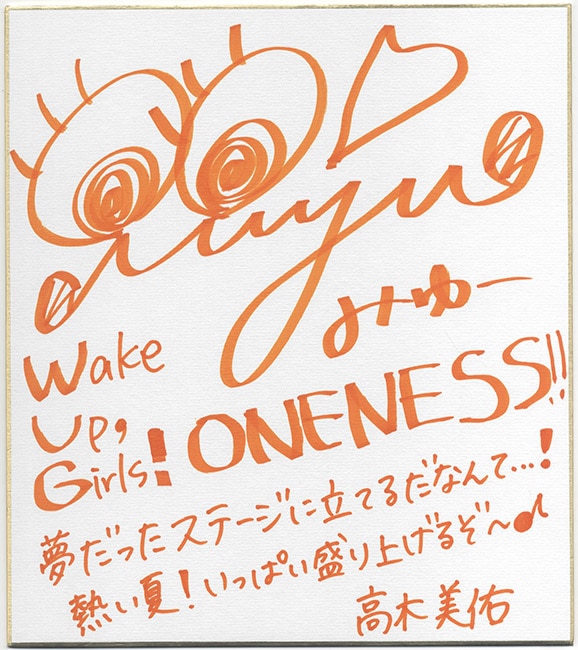 miyu
みゅー
Wake
Up,
Girls! ONENESS!!
夢だったステージに立てるだなんて...!
熱い夏!いっぱい盛り上げるぞ〜♪
高木美佑